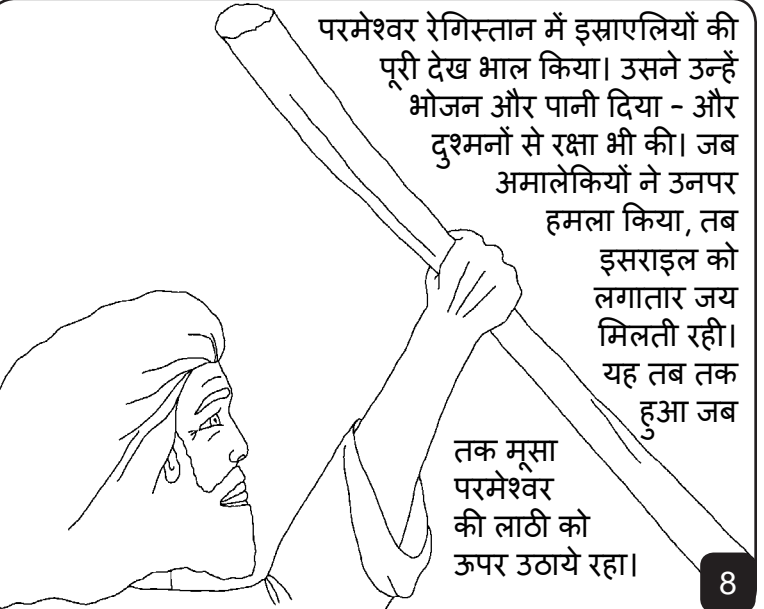 परमेश्वर रेगिस्तान में इस्राएलियों की
पूरी देख भाल किया। उसने उन्हें
भोजन और पानी दिया – और
दुश्मनों से रक्षा भी की। जब
अमालेकियों ने उनपर
हमला किया, तब
इसराइल को
लगातार जय
मिलती रही।
यह तब तक
हुआ जब
तक मूसा
परमेश्वर
की लाठी को
ऊपर उठाये रहा।
8